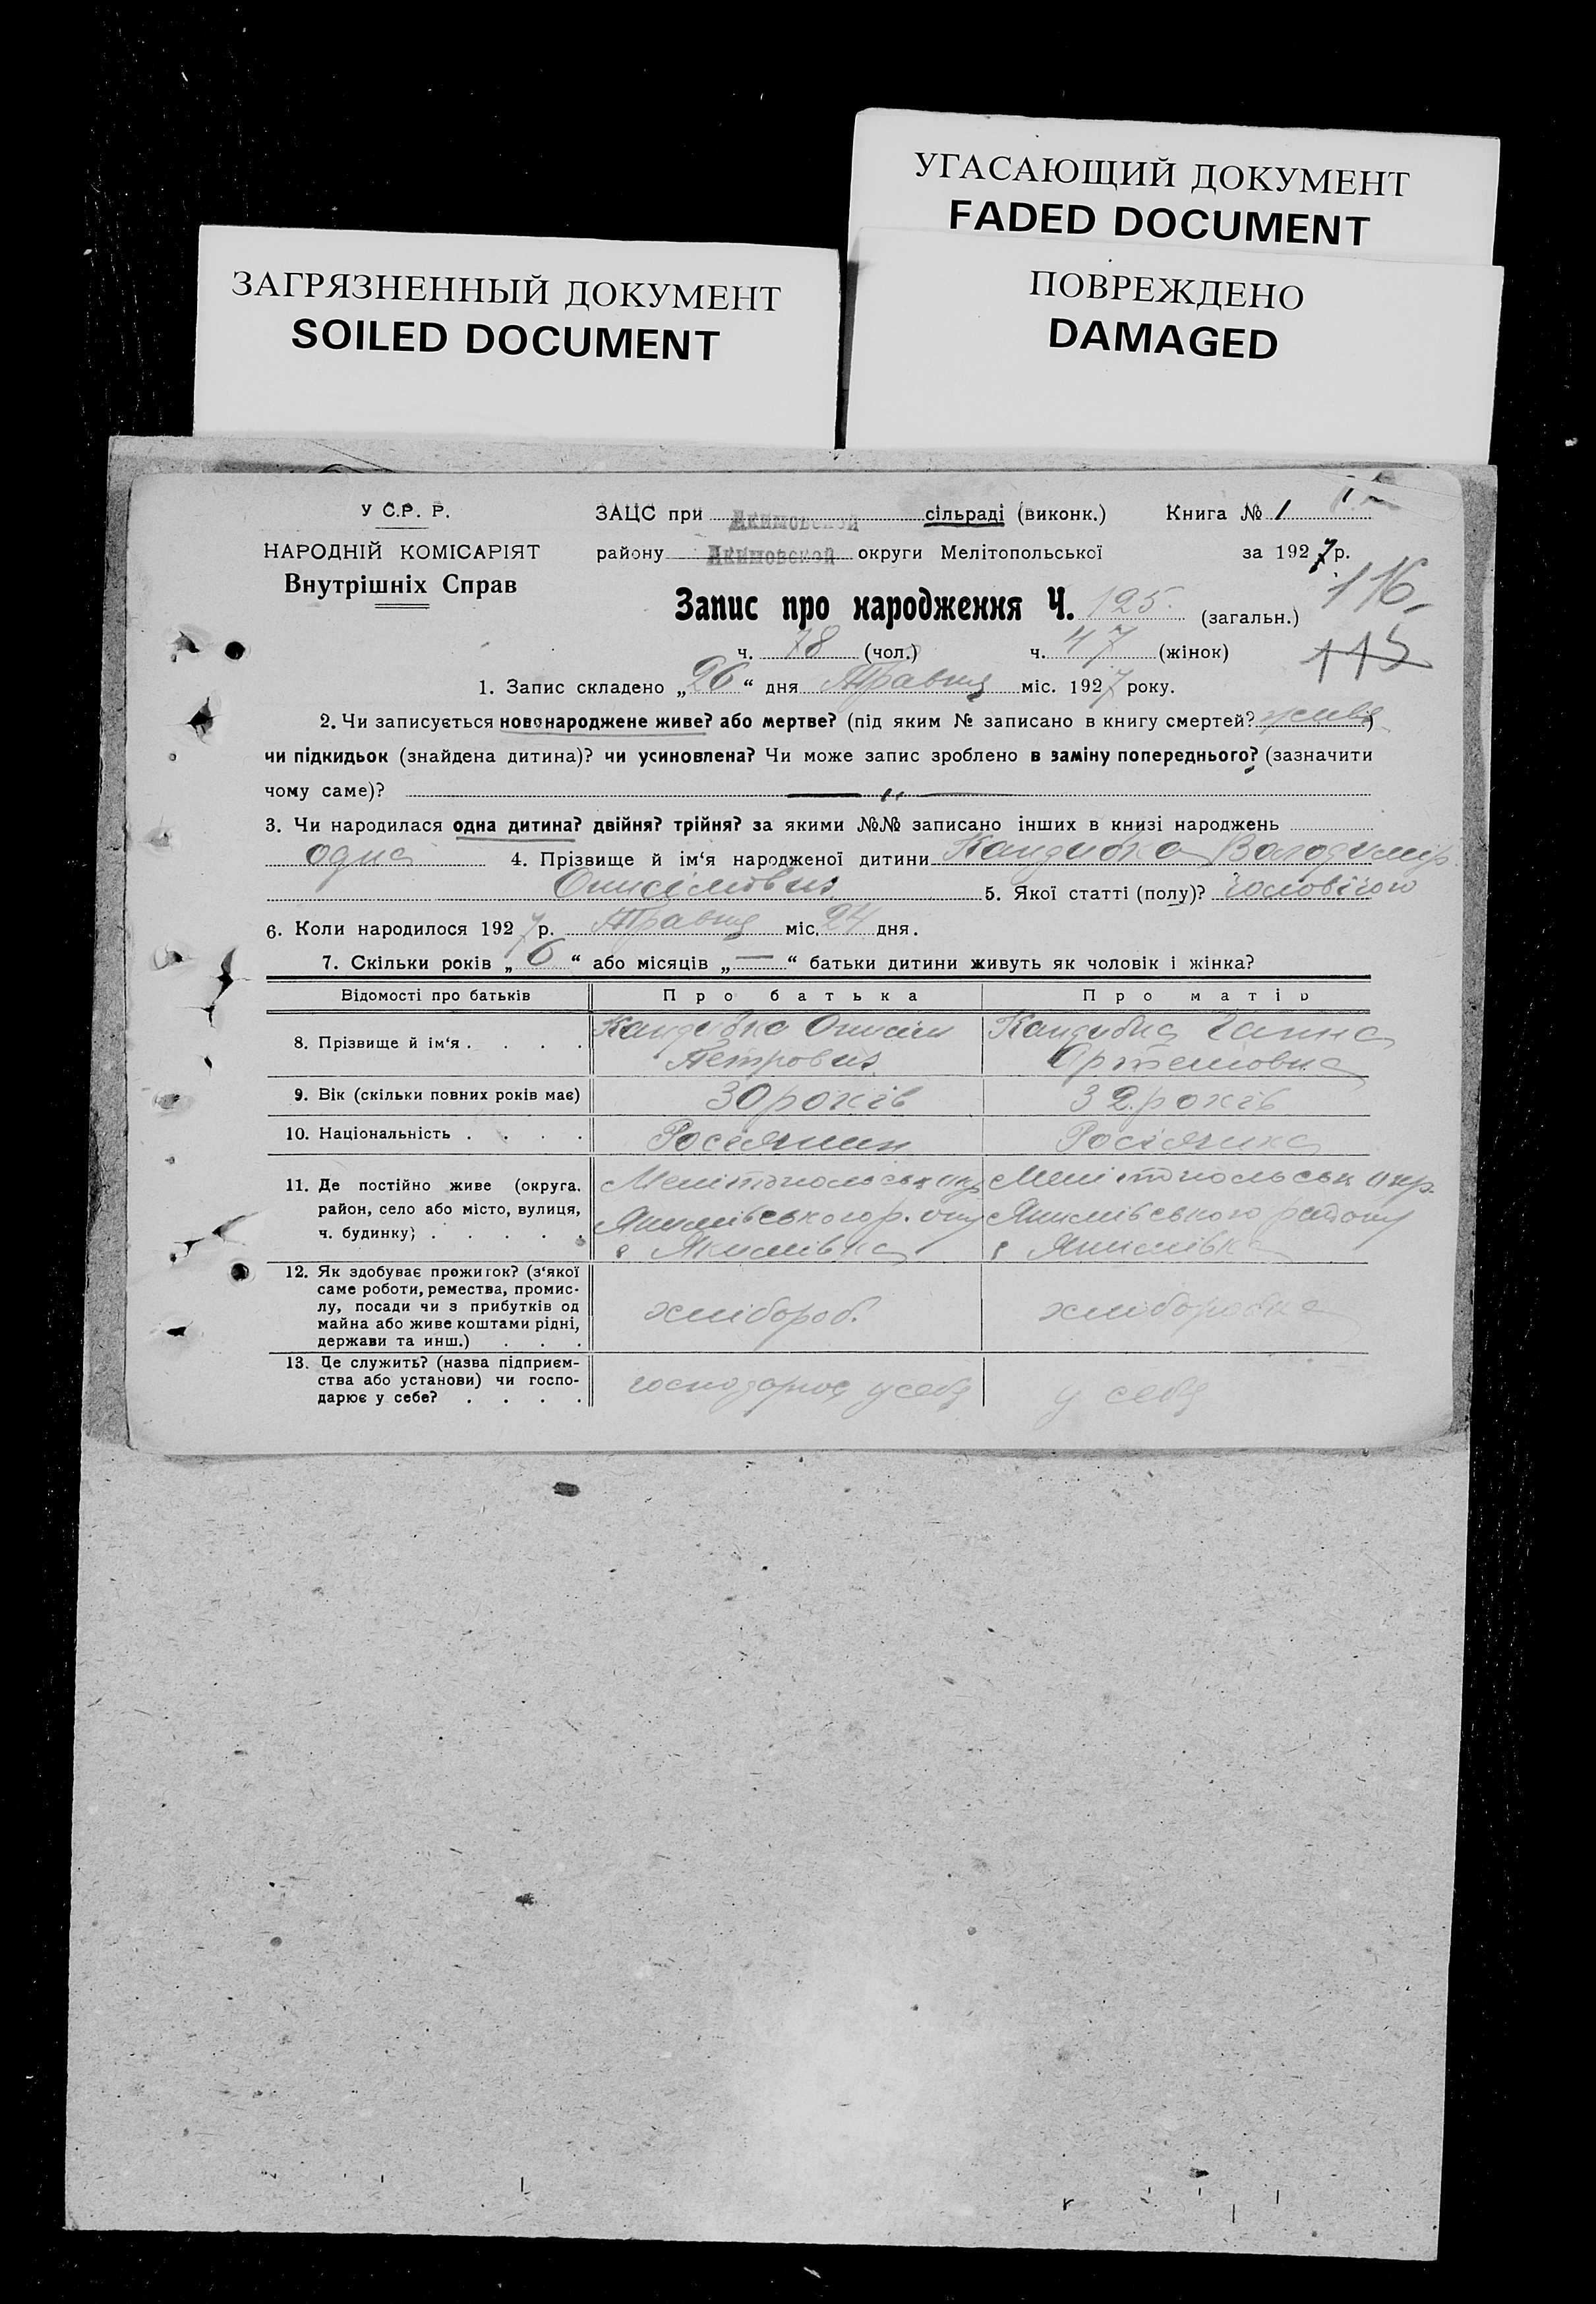 УГАСАЮЩИЙ ДОКУМЕНТ
FADED DOCUMENT
ЗАГРЯЗНЕННЫЙ ДОКУМЕНТ
SOILED DOCUMENT
ПОВРЕЖДЕНО
DAMAGED
У С.Р. Р.
НАРОДНІЙ КОМІСАРІЯТ
Внутрішніх Справ
ЗАЦС при Акимовской сільраді (виконк.) Книга № 1
району Акимовской округи Мелітопольської за 1927 р.
116
Запис про народження Ч. 125. (загальн.)
ч. 78 (чол.) ч. 47 (жінок)
115
1. Запис складено „26“ дня Травня міс. 1927 року.
2. Чи записується новонароджене живе? або мертве? (під яким № записано в книгу смертей? живе)
чи підкидьок (знайдена дитина)? чи усиновлена? Чи може запис зроблено в заміну попереднього? (зазначити
чому саме)? — „ —
3. Чи народилася одна дитина? двійня? трійня? за якими №№ записано інших в книзі народжень
одна 4. Прізвище й ім‘я народженої дитини Кандибка Володимір
Онисімович 5. Якої статті (полу)? чоловічого
6. Коли народилося 1927 р. Травня міс. 24 дня.
7. Скільки років „6“ або місяців „—“ батьки дитини живуть як чоловік і жінка?
Відомості про батьків Про батька Про матір
8. Прізвище й ім‘я . . . . Кандибка Онисім Петрович Кандибка Ганна Артемовна
9. Вік (скільки повних років має) 30 років 32 років
10. Національність . . . . Росіянин Росіянка
11. Де постійно живе (округа, район, село або місто, вулиця, ч. будинку) . . . . . Мелітопольськ окр Якимівського р. с Якимівка Мелітопольськ окр. Якимівського району с Якимівка
12. Як здобуває прожиток? (з‘якої саме роботи, ремества, промислу, посади чи з прибутків од майна або живе коштами рідні, держави та инш.) . . . хлібороб. хліборобка
13. Це служить? (назва підприємства або установи) чи господарює у себе? . . . . господарює у себе у себе